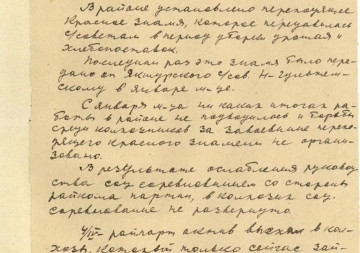 В районе установлено переходящее
Красное знамя, которое передавалось
с/советам в период уборки урожая и
хлебопоставок.
Последний раз это знамя было пере-
дано от Якшурского с/сов. Н-
скому в январе м-це.
С января м-ца ни каких итогов ра-
боты в районе не подводилось и борьбы
среди колхозников за завоевание перехо-
дящего красного знамени не органи-
зовано.
В результате ослабления руковод-
ства соц. соревнованием со стороны
райкома партии, в колхозах соц.
соревнование не развернуто.
4/IV- райпарт актив выехал в кол-
хозы, который только сейчас зай-